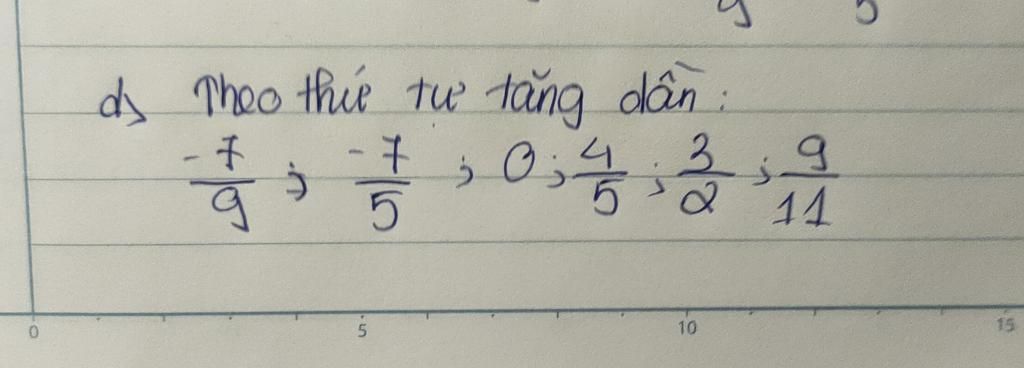 d) Theo thứ tự tăng dần:
-7/9 ; -7/5 ; 0 ; 4/5 ; 3/2 ; 9/11
0 5 10 15